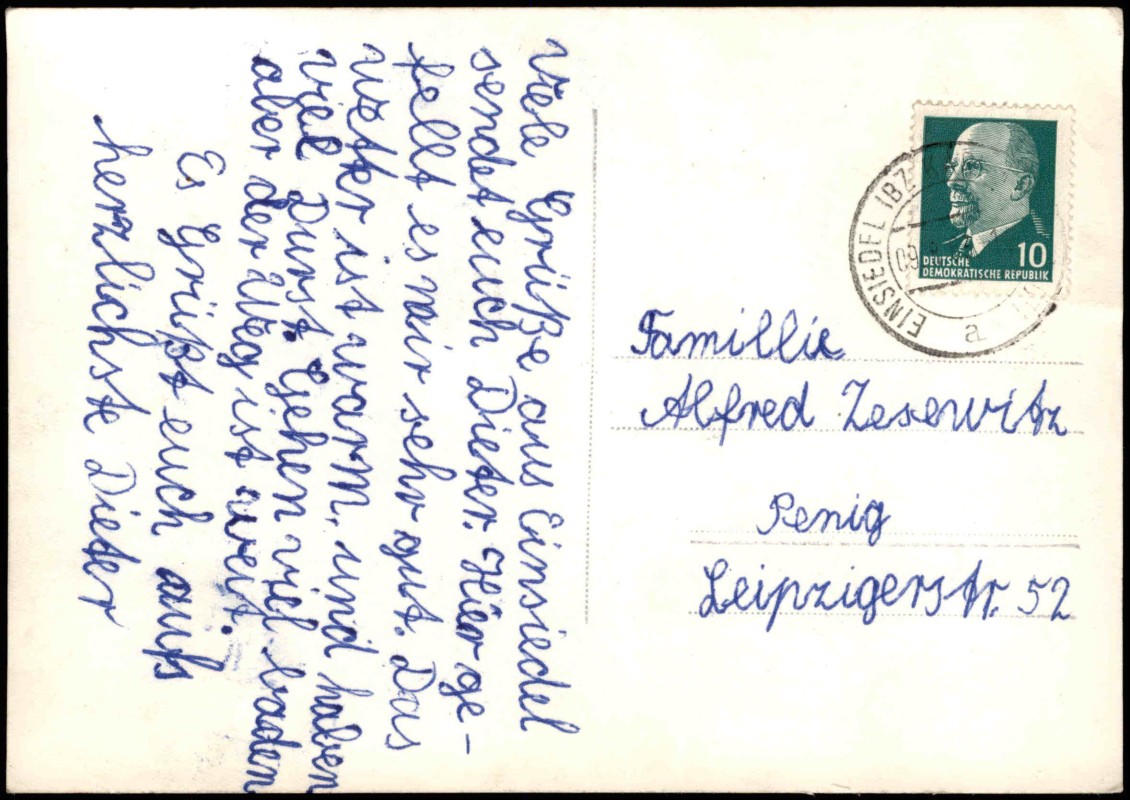 Viele Grüße aus Einsiedel
sendet euch Dieter. Hier ge-
fellt es mir sehr gut. Das
Wetter ist warm, und haben
viel Durst. Gehen viel baden
aber der Weg ist weit.
Es Grüßt euch aufs
herzlichste Dieter
EINSIEDEL (BZ.
09.
a
10
DEUTSCHE
DEMOKRATISCHE REPUBLIK
Famillie
Alfred Zesewitz
Penig
Leipzigerstr. 52